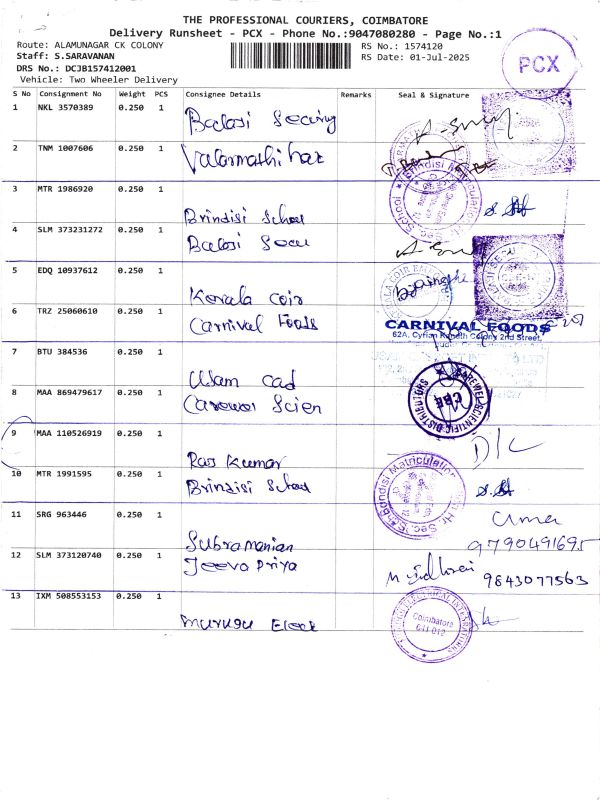 THE PROFESSIONAL COURIERS, COIMBATORE
Delivery Runsheet - PCX - Phone No.:9047080280 - Page No.:1
Route: ALAMUNAGAR CK COLONY
RS No.: 1574120
Staff: S.SARAVANAN
RS Date: 01-Jul-2025
DRS No.: DCJB157412001
Vehicle: Two Wheeler Delivery
PCX
S No Consignment No Weight PCS Consignee Details Remarks Seal & Signature
1 NKL 3570389 0.250 1 Balaji
2 TNM 1007606 0.250 1
3 MTR 1986920 0.250 1 Brindisi School
4 SLM 373231272 0.250 1 Balaji
5 EDQ 10937612 0.250 1 Kerala Coir
6 TRZ 25060610 0.250 1 Carnival Foods
CARNIVAL FOODS
62A, Cyrian Colony 2nd Street,
7 BTU 384536 0.250 1 Usam Cad
8 MAA 869479617 0.250 1 Scien
SCIENTIFIC DISTRIBUTORS
CBE
9 MAA 110526919 0.250 1 Raj Kumar D/C
10 MTR 1991595 0.250 1 Brindisi School
Brindisi Matriculation Hr. Sec. School
11 SRG 963446 0.250 1 Subramanian Uma
9790491695
12 SLM 373120740 0.250 1 Jeeva Priya 9843077563
13 IXM 508553153 0.250 1 Murugu Elect
Coimbatore
641 012